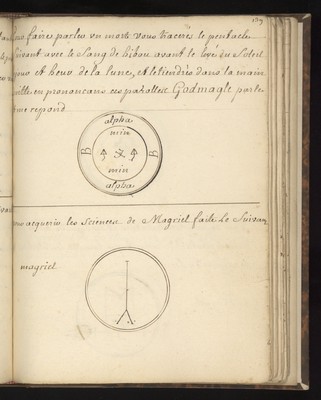 pour faire parler un morts vous tracerez le pentacle
Suivant avec le Sang de hibou avant le levé du Soleil
jour et heur de la lune, et le tiendrés dans la main
en prononcans ces parolles Godmagle parle
me repond
alpha
min
B B
min
alpha
pour acquerir les Sciences de Magriel faite le Suivan
magriel